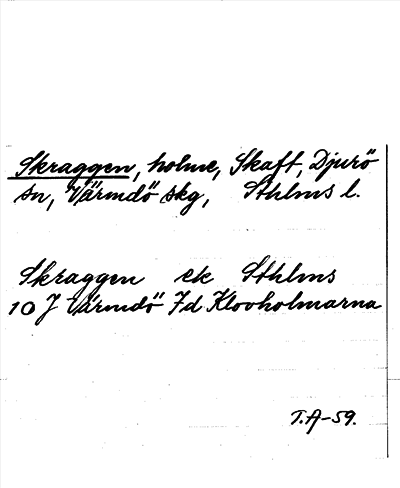 Skraggen, holme, Skaft, Djurö
sn, Värmdö skg, Sthlms l.
Skraggen ek Sthlms
10 J Värmdö 7d Klovholmarna
T.A-59.